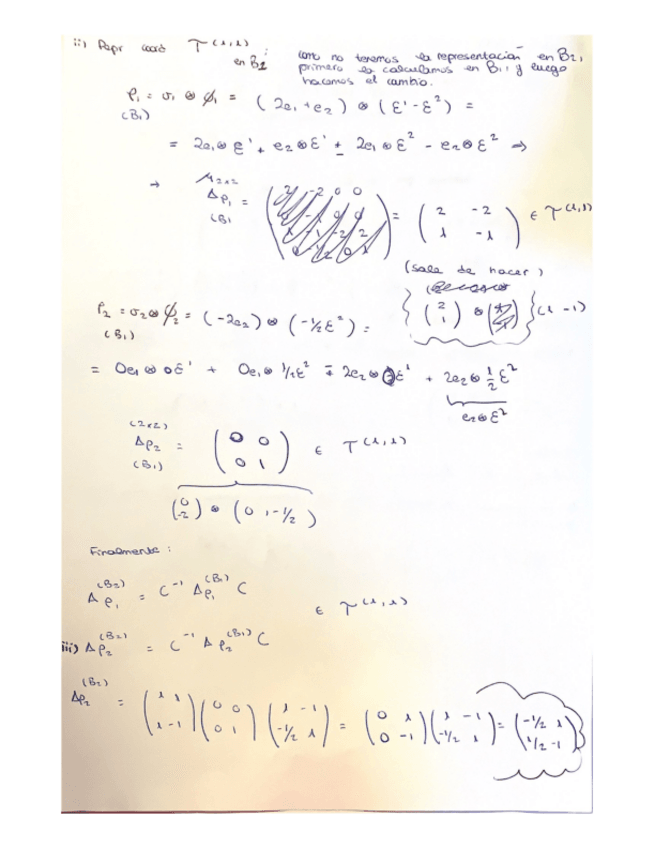 ii) Repr coord T^(1,1) en B2 : como no tenemos la representación en B2,
primero la calculamos en B1, y luego
hacemos el cambio.
ρ1 = v1 ⊗ ϕ1 = (2e1 + e2) ⊗ (ε¹ - ε²) =
(B1)
= 2e1 ⊗ ε¹ + e2 ⊗ ε¹ ± 2e1 ⊗ ε² - e2 ⊗ ε² ⇒
→ 2x2 Aρ1 (B1) = = ( 2 -2 ; 1 -1 ) ∈ T^(1,1)
(sale de hacer)
{ (2 ; 1) ⊗ } (1 -1)
ρ2 = v2 ⊗ ϕ2 = (-2e2) ⊗ (-1/2 ε²) =
(B1)
= 0e1 ⊗ 0ε¹ + 0e1 ⊗ 1/2 ε² 2e2 ⊗ 0ε¹ + 2e2 ⊗ 1/2 ε²
e2 ⊗ ε²
(2x2) Aρ2 (B1) = ( 0 0 ; 0 1 ) ∈ T^(1,1)
(0 ; -2) ⊗ (0 , -1/2)
Finalmente :
Aρ1^(B2) = C⁻¹ Aρ1^(B1) C
∈ T^(1,1)
iii) Aρ2^(B2) = C⁻¹ Aρ2^(B1) C
Aρ2^(B2) = ( 1 1 ; 1 -1 ) ( 0 0 ; 0 1 ) ( 1 -1 ; -1/2 1 ) = ( 0 1 ; 0 -1 ) ( 1 -1 ; -1/2 1 ) = ( -1/2 1 ; 1/2 -1 )